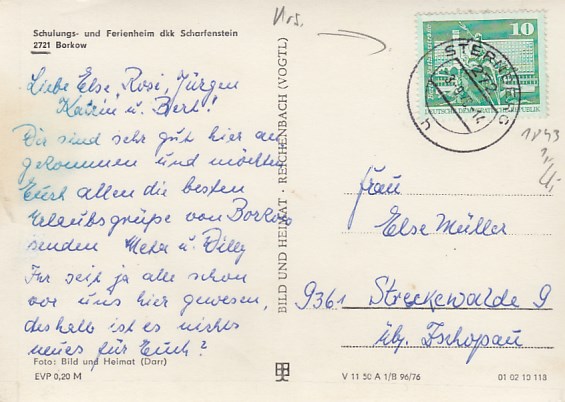 Schulungs- und Ferienheim dkk Scharfenstein
2721 Borkow
Liebe Else, Rosi, Jürgen
Katrin u. Bert!
Wir sind sehr gut hier an
gekommen und möchten
Euch allen die besten
Urlaubsgrüße von Borkow
senden Meta u. Willy
Ihr seit ja alle schon
vor uns hier gewesen,
deshalb ist es nichts
neues für Euch?
Foto: Bild und Heimat (Darr)
EVP 0,20 M
BILD UND HEIMAT · REICHENBACH (VOGTL)
10
DEUTSCHE DEMOKRATISCHE REPUBLIK
STERNBERG
272
1843
Frau
Else Müller
9361 Streckewalde 9
üb. Zschopau
V 11 50 A 1/B 96/76
01 02 10 118